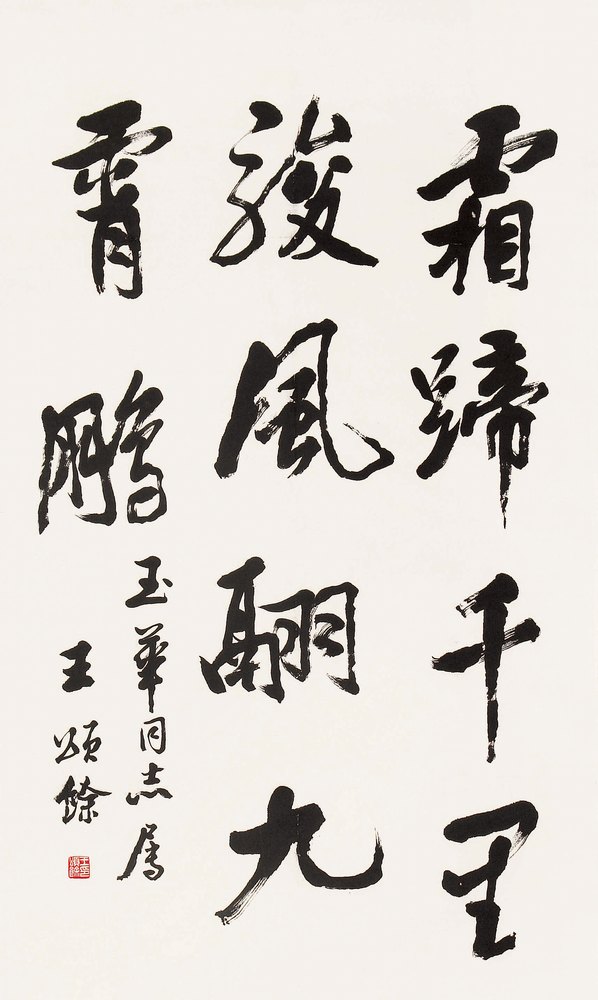 霜蹄千里
駿風翮九
霄鵬
玉華同志屬
王頌餘